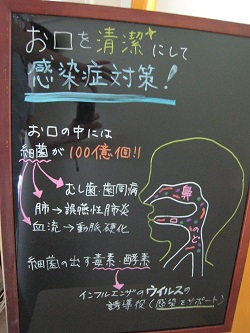 お口を清潔にして
感染症対策!
お口の中には
細菌が100億個!!
むし歯・歯周病
肺→誤嚥性肺炎
血流→動脈硬化
鼻
のど
細菌の出す毒素・酵素
インフルエンザのウイルスの
誘導役(感染をサポート)